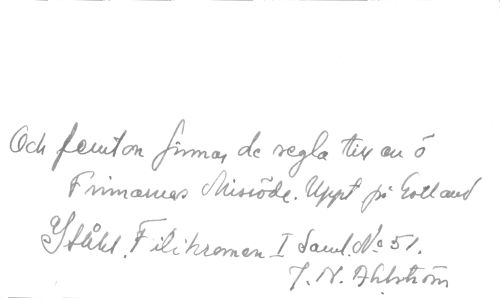 Och femton finnar de segla till en ö
Finnarnas Missöde. Uppt på Gotland
I Ståhl. Filikromen I Saml. No 51.
J. N. Ahlström